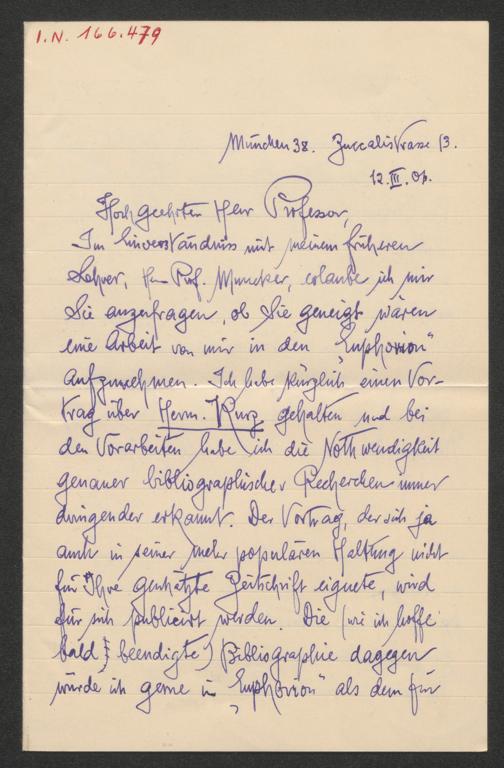 I.N. 166.479
München 38. Zuccalistrasse 13.
12.III.06.
Hochgeehrter Herr Professor,
Im Einverständnis mit meinem früheren
Lehrer, Herrn Prof. Muncker, erlaube ich mir
Sie anzufragen, ob Sie geneigt wären
eine Arbeit von mir in den „Euphorion"
aufzunehmen. Ich habe kürzlich einen Vor-
trag über Herm. Kurz gehalten und bei
den Vorarbeiten habe ich die Nothwendigkeit
genauer bibliographischer Recherchen immer
dringender erkannt. Der Vortrag, der sich ja
auch in seiner mehr populären Haltung nicht
für Ihre geschätzte Zeitschrift eignete, wird
für sich publiciert werden. Die (wie ich hoffe
bald beendigte) Bibliographie dagegen
würde ich gerne im „Euphorion" als dem für